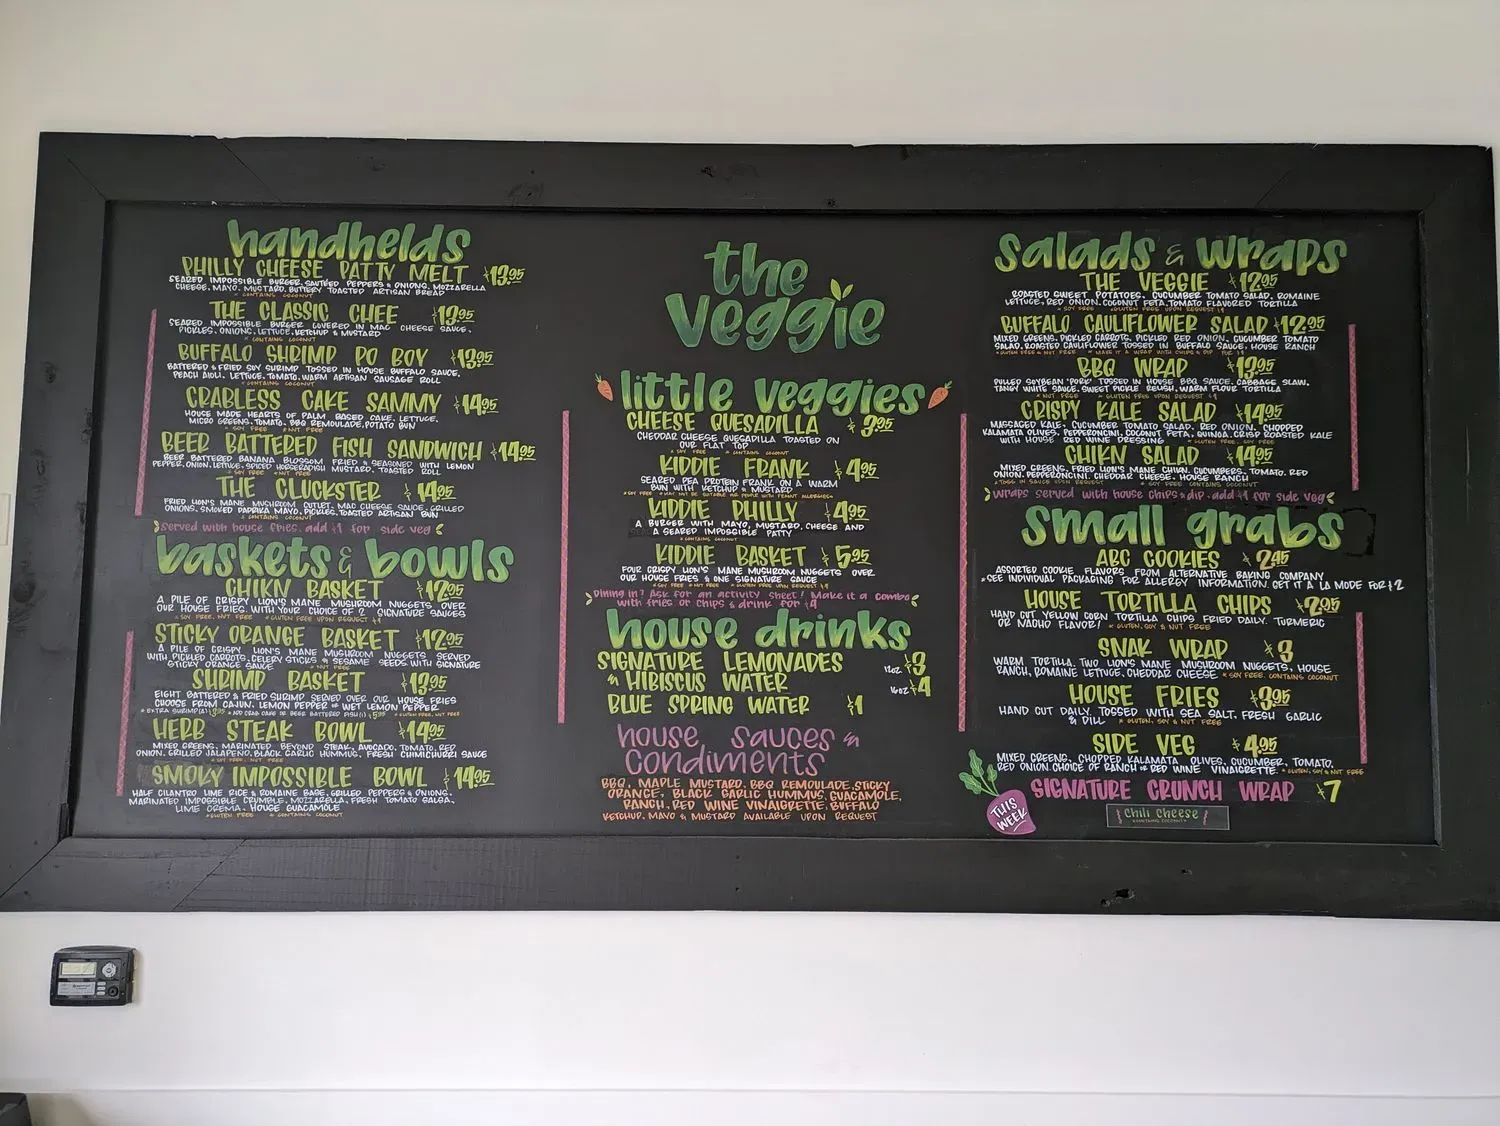 handhelds
PHILLY CHEESE PATTY MELT $13.95
SEARED IMPOSSIBLE BURGER, SAUTÉED PEPPERS & ONIONS, MOZZARELLA
CHEESE, MAYO, MUSTARD, BUTTERY TOASTED ARTISAN BREAD
* CONTAINS COCONUT
THE CLASSIC CHEE $13.95
SEARED IMPOSSIBLE BURGER COVERED IN MAC CHEESE SAUCE,
PICKLES, ONIONS, LETTUCE, KETCHUP & MUSTARD
* CONTAINS COCONUT
BUFFALO SHRIMP PO BOY $13.95
BATTERED & FRIED SOY SHRIMP TOSSED IN HOUSE BUFFALO SAUCE,
PEACH AIOLI, LETTUCE, TOMATO, WARM ARTISAN SAUSAGE ROLL
* CONTAINS COCONUT
CRABLESS CAKE SAMMY $14.95
HOUSE MADE HEARTS OF PALM BASED CAKE, LETTUCE,
MICRO GREENS, TOMATO, BBQ REMOULADE, POTATO BUN
* SOY FREE * NUT FREE
BEER BATTERED FISH SANDWICH $14.95
BEER BATTERED BANANA BLOSSOM FRIED & SEASONED WITH LEMON
PEPPER, ONION, LETTUCE, SPICED HORSERADISH MUSTARD, TOASTED ROLL
* SOY FREE * NUT FREE
THE CLUCKSTER $14.95
FRIED LION'S MANE MUSHROOM CUTLET, MAC CHEESE SAUCE, GRILLED
ONIONS, SMOKED PAPRIKA MAYO, PICKLES, TOASTED ARTISAN BUN
* CONTAINS COCONUT
served with house fries, add $1 for side veg
baskets & bowls
CHIKN BASKET $12.95
A PILE OF CRISPY LION'S MANE MUSHROOM NUGGETS OVER
OUR HOUSE FRIES WITH YOUR CHOICE OF 2 SIGNATURE SAUCES
* SOY FREE, NUT FREE * GLUTEN FREE UPON REQUEST $1
STICKY ORANGE BASKET $12.95
A PILE OF CRISPY LION'S MANE MUSHROOM NUGGETS SERVED
WITH PICKLED CARROTS, CELERY STICKS & SESAME SEEDS WITH SIGNATURE
STICKY ORANGE SAUCE * NUT FREE
SHRIMP BASKET $13.95
EIGHT BATTERED & FRIED SHRIMP SERVED OVER OUR HOUSE FRIES
CHOOSE FROM CAJUN, LEMON PEPPER OR WET LEMON PEPPER
HERB STEAK BOWL $14.95
MIXED GREENS, MARINATED BEYOND STEAK, AVOCADO, TOMATO, RED
ONION, GRILLED JALAPENO, BLACK GARLIC HUMMUS, FRESH CHIMICHURRI SAUCE
* SOY FREE, NUT FREE
SMOKY IMPOSSIBLE BOWL $14.95
HALF CILANTRO LIME RICE & ROMAINE BASE, GRILLED PEPPERS & ONIONS,
MARINATED IMPOSSIBLE CRUMBLE, MOZZARELLA, FRESH TOMATO SALSA,
LIME CREMA, HOUSE GUACAMOLE
* GLUTEN FREE * CONTAINS COCONUT
the
Veggie
little veggies
CHEESE QUESADILLA $3.95
CHEDDAR CHEESE QUESADILLA TOASTED ON
OUR FLAT TOP
* SOY FREE * CONTAINS COCONUT
KIDDIE FRANK $4.95
SEARED PEA PROTEIN FRANK ON A WARM
BUN WITH KETCHUP & MUSTARD
* SOY FREE * MAY NOT BE SUITABLE FOR PEOPLE WITH PEANUT ALLERGIES
KIDDIE PHILLY $4.95
A BURGER WITH MAYO, MUSTARD, CHEESE AND
A SEARED IMPOSSIBLE PATTY
* CONTAINS COCONUT
KIDDIE BASKET $5.95
FOUR CRISPY LION'S MANE MUSHROOM NUGGETS OVER
OUR HOUSE FRIES & ONE SIGNATURE SAUCE
* SOY FREE * NUT FREE * GLUTEN FREE UPON REQUEST $1
Dining in? Ask for an activity sheet! Make it a combo
with fries or chips & drink for $4
house drinks
SIGNATURE LEMONADES 12oz $3
& HIBISCUS WATER 16oz $4
BLUE SPRING WATER $1
house sauces &
condiments
BBQ, MAPLE MUSTARD, BBQ REMOULADE, STICKY
ORANGE, BLACK GARLIC HUMMUS, GUACAMOLE,
RANCH, RED WINE VINAIGRETTE, BUFFALO
KETCHUP, MAYO & MUSTARD AVAILABLE UPON REQUEST
salads & wraps
THE VEGGIE $12.95
ROASTED SWEET POTATOES, CUCUMBER TOMATO SALAD, ROMAINE
LETTUCE, RED ONION, COCONUT FETA, TOMATO FLAVORED TORTILLA
* SOY FREE * GLUTEN FREE UPON REQUEST $1
BUFFALO CAULIFLOWER SALAD $12.95
MIXED GREENS, PICKLED CARROTS, PICKLED RED ONION, CUCUMBER TOMATO
SALAD, ROASTED CAULIFLOWER TOSSED IN BUFFALO SAUCE, HOUSE RANCH
* GLUTEN FREE & NUT FREE * MAKE IT A WRAP WITH CHIPS & DIP FOR $1
BBQ WRAP $13.95
PULLED SOYBEAN "PORK" TOSSED IN HOUSE BBQ SAUCE, CABBAGE SLAW,
TANGY WHITE SAUCE, SWEET PICKLE RELISH, WARM FLOUR TORTILLA
* NUT FREE * GLUTEN FREE UPON REQUEST $1
CRISPY KALE SALAD $14.95
MASSAGED KALE, CUCUMBER TOMATO SALAD, RED ONION, CHOPPED
KALAMATA OLIVES, PEPPERONCINI, COCONUT FETA, QUINOA, CRISP ROASTED KALE
WITH HOUSE RED WINE DRESSING * SOY FREE
CHIKN SALAD $14.95
MIXED GREENS, FRIED LION'S MANE CHIKN, CUCUMBERS, TOMATO, RED
ONION, PEPPERONCINI, CHEDDAR CHEESE, HOUSE RANCH
* TOSS IN SAUCE UPON REQUEST * SOY FREE, CONTAINS COCONUT
wraps served with house chips & dip, add $1 for side veg
small grabs
ABC COOKIES $2.45
ASSORTED COOKIE FLAVORS FROM ALTERNATIVE BAKING COMPANY
*SEE INDIVIDUAL PACKAGING FOR ALLERGY INFORMATION. GET IT A LA MODE FOR $2
HOUSE TORTILLA CHIPS $2.95
HAND CUT YELLOW CORN TORTILLA CHIPS FRIED DAILY. TURMERIC
OR NACHO FLAVOR! * GLUTEN, SOY & NUT FREE
SNAK WRAP $3
WARM TORTILLA, TWO LION'S MANE MUSHROOM NUGGETS, HOUSE
RANCH, ROMAINE LETTUCE, CHEDDAR CHEESE * SOY FREE, CONTAINS COCONUT
HOUSE FRIES $3.95
HAND CUT DAILY, TOSSED WITH SEA SALT, FRESH GARLIC
& DILL * GLUTEN, SOY & NUT FREE
SIDE VEG $4.95
MIXED GREENS, CHOPPED KALAMATA OLIVES, CUCUMBER, TOMATO,
RED ONION CHOICE OF RANCH OR RED WINE VINAIGRETTE. * GLUTEN, SOY & NUT FREE
THIS
WEEK
SIGNATURE CRUNCH WRAP $7
chili cheese
*CONTAINS COCONUT*